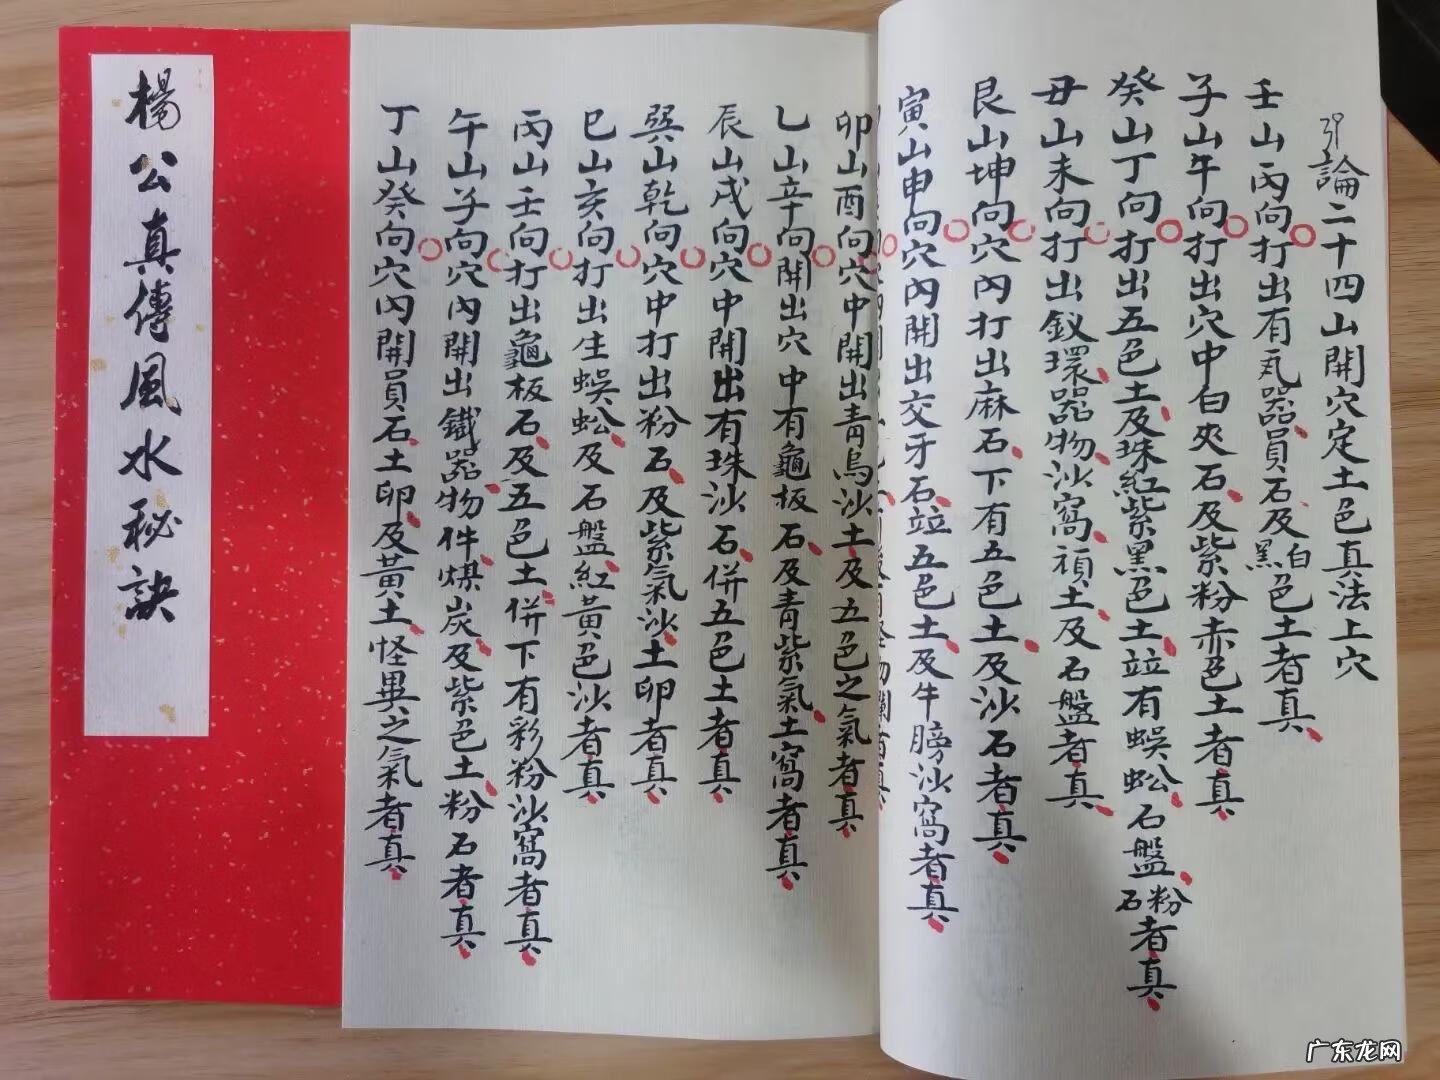 楊公真傳風水秘訣
論二十四山開穴定土色真法上穴
壬山丙向打出有瓦器員石及白黑色土者真
子山午向打出穴中白夾石及紫粉赤色土者真
癸山丁向打出五色土及珠紅紫黑色土竝有蜈蚣石盤石粉者真
丑山未向打出釵環器物沙窩頑土及石盤者真
艮山坤向穴內打出麻石下有五色土及沙石者真
寅山申向穴內開出交牙石竝五色土及牛膀沙窩者真
卯山酉向穴中開出青烏沙土及五色之氣者真
乙山辛向開出穴中有龜板石及青紫氣土窩者真
辰山戌向穴中開出有珠沙石併五色土者真
巽山乾向穴中打出粉石及紫氣沙土卵者真
巳山亥向打出生蜈蚣及石盤紅黃色沙者真
丙山壬向打出龜板石及五色土併下有彩粉沙窩者真
午山子向穴內開出鐵器物件煤炭及紫色土粉石者真
丁山癸向穴內開員石土卵及黃土怪異之氣者真
广东龙网